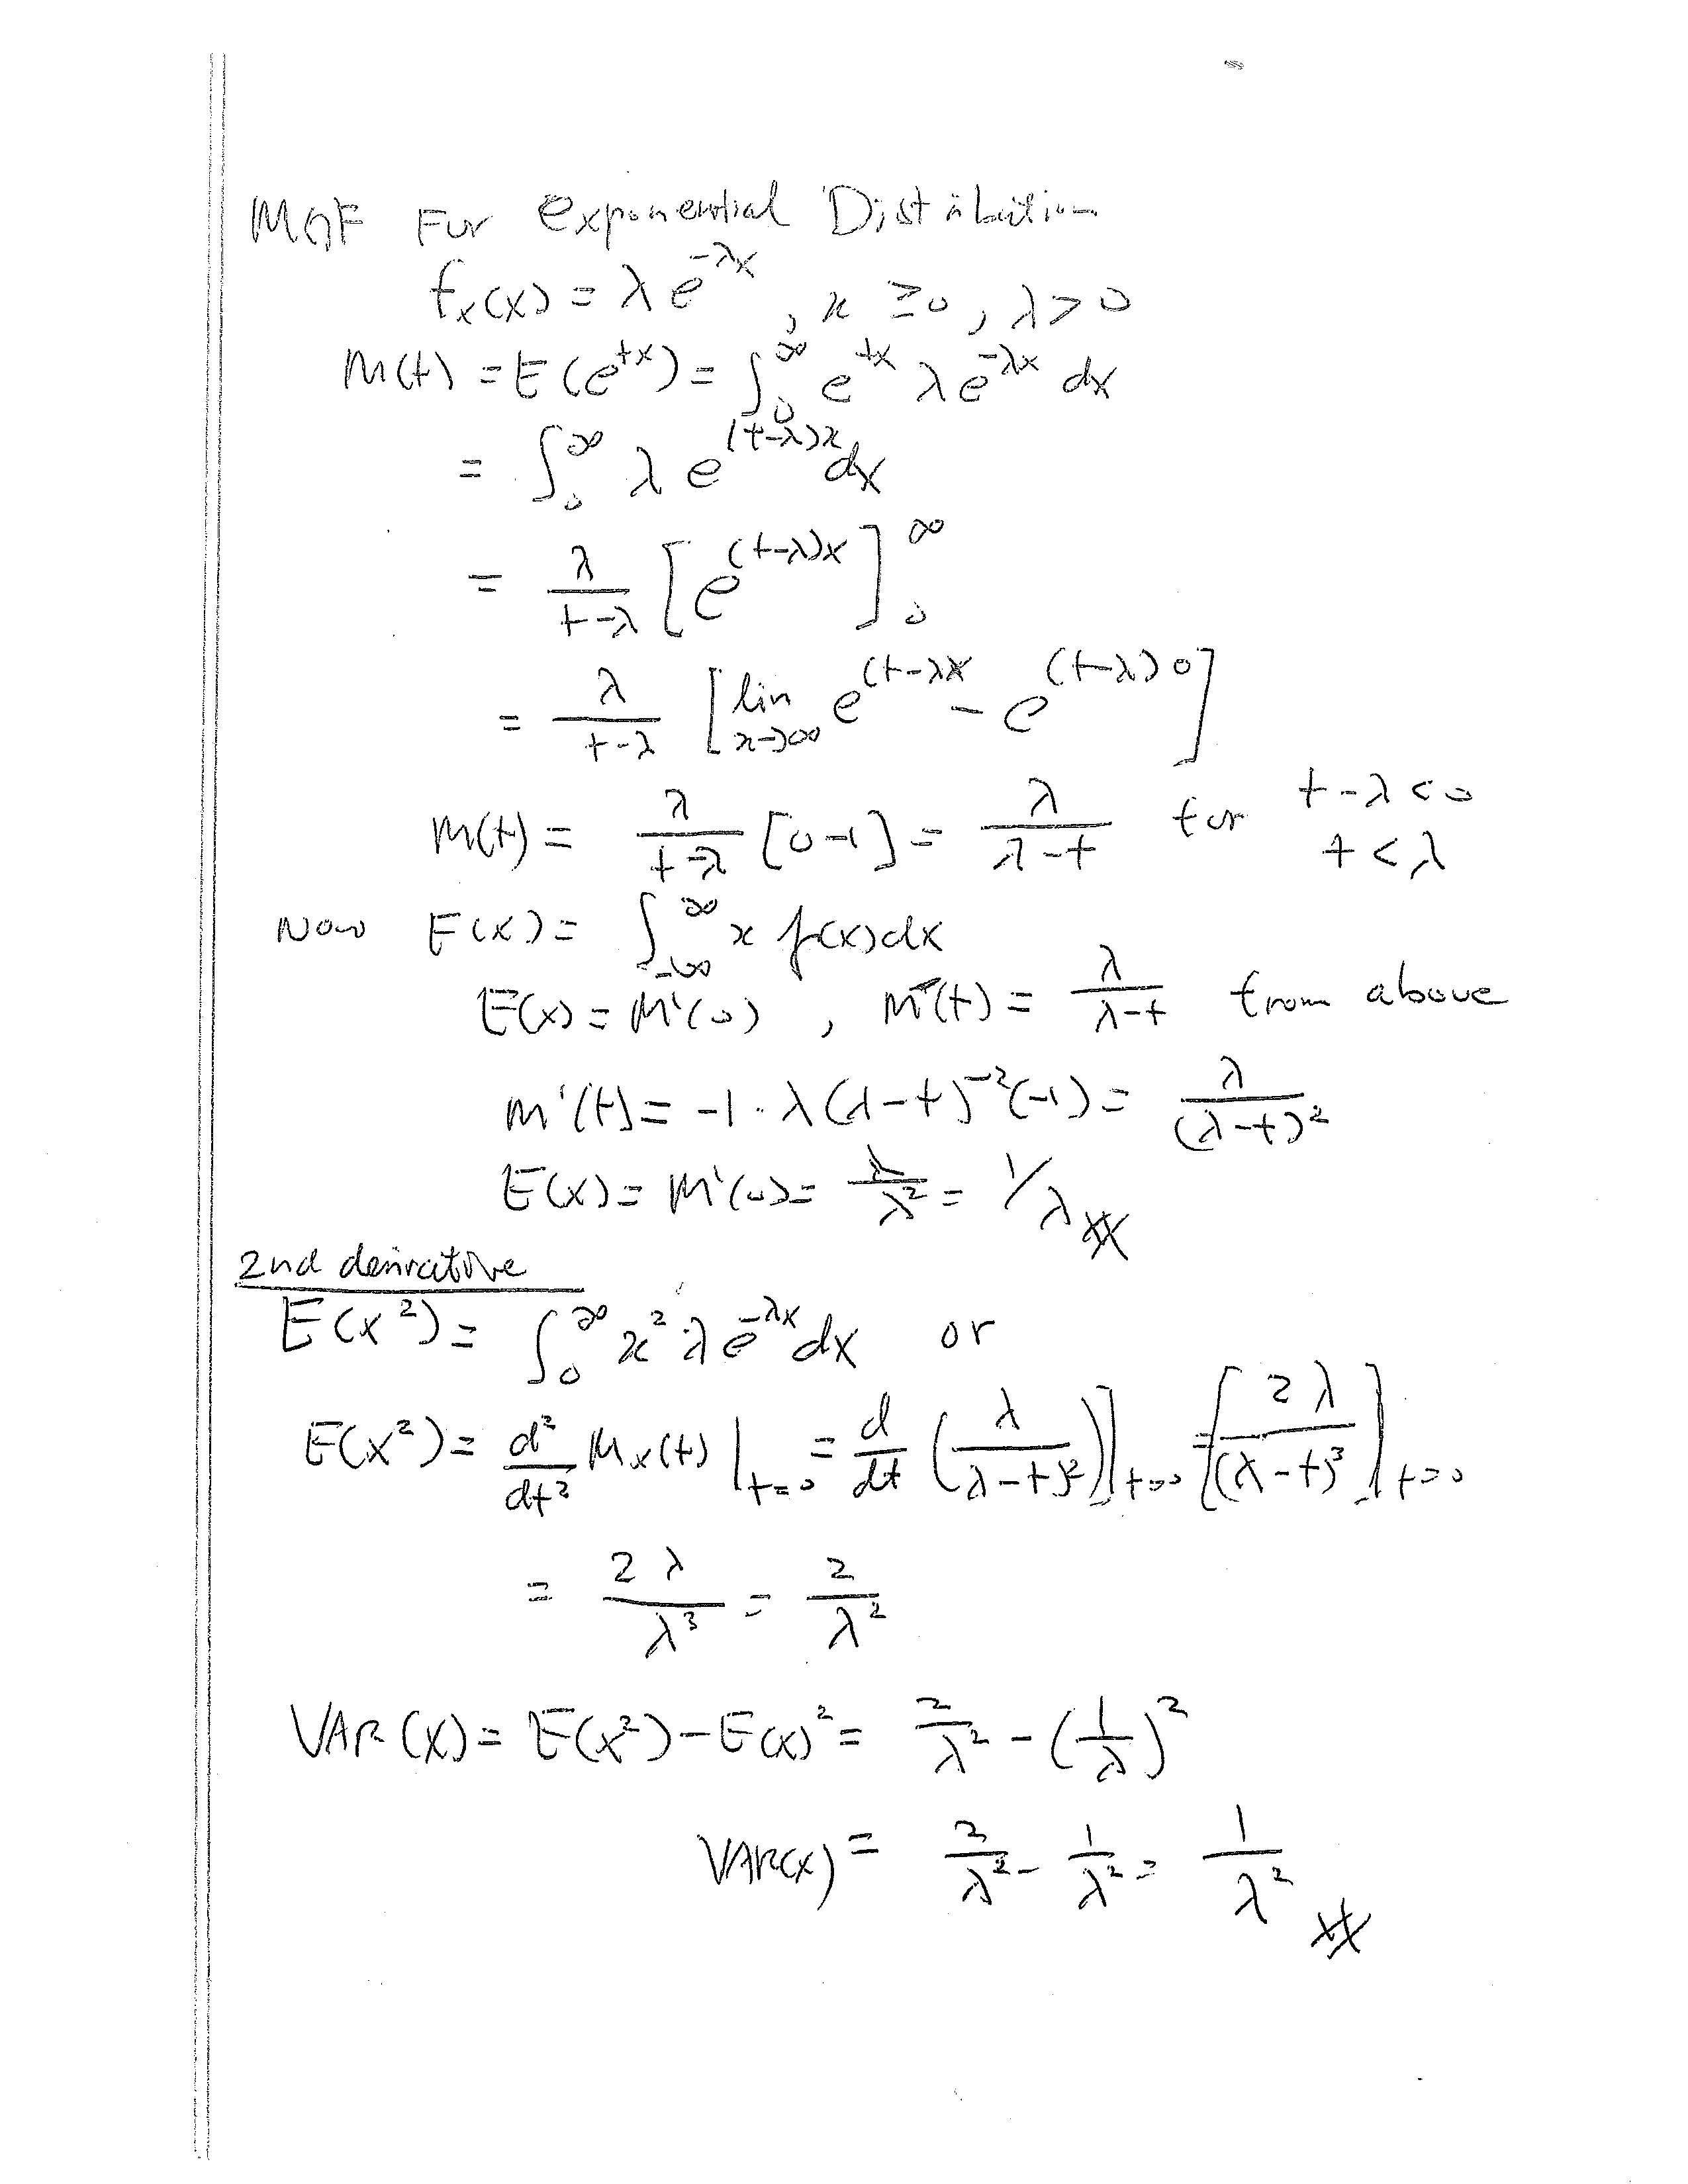 MGF For exponential Distribution
fₓ(x) = λ e^{-λx}, x ≥ 0, λ > 0
M(t) = E(e^{tx}) = ∫₀^∞ e^{tx} λ e^{-λx} dx
= ∫₀^∞ λ e^{(t-λ)x} dx
= λ/(t-λ) [e^{(t-λ)x}]₀^∞
= λ/(t-λ) [lim_{x→∞} e^{(t-λx} - e^{(t-λ)0}]
M(t) = λ/(t-λ) [0-1] = λ/(λ-t) for t-λ < 0
t < λ
Now E(x) = ∫_{-∞}^∞ x f(x) dx
E(x) = M'(0), M(t) = λ/(λ-t) from above
M'(t) = -1 · λ(λ-t)^{-2}(-1) = λ/(λ-t)²
E(x) = M'(0) = λ/λ² = 1/λ
2nd derivative
E(x²) = ∫₀^∞ x² λ e^{-λx} dx or
E(x²) = d²/dt² Mₓ(t) |_{t=0} = d/dt (λ/(λ-t)²)|_{t=0} = [2λ/(λ-t)³]|_{t=0}
= 2λ/λ³ = 2/λ²
VAR(X) = E(x²) - E(x)² = 2/λ² - (1/λ)²
VAR(x) = 2/λ² - 1/λ² = 1/λ²